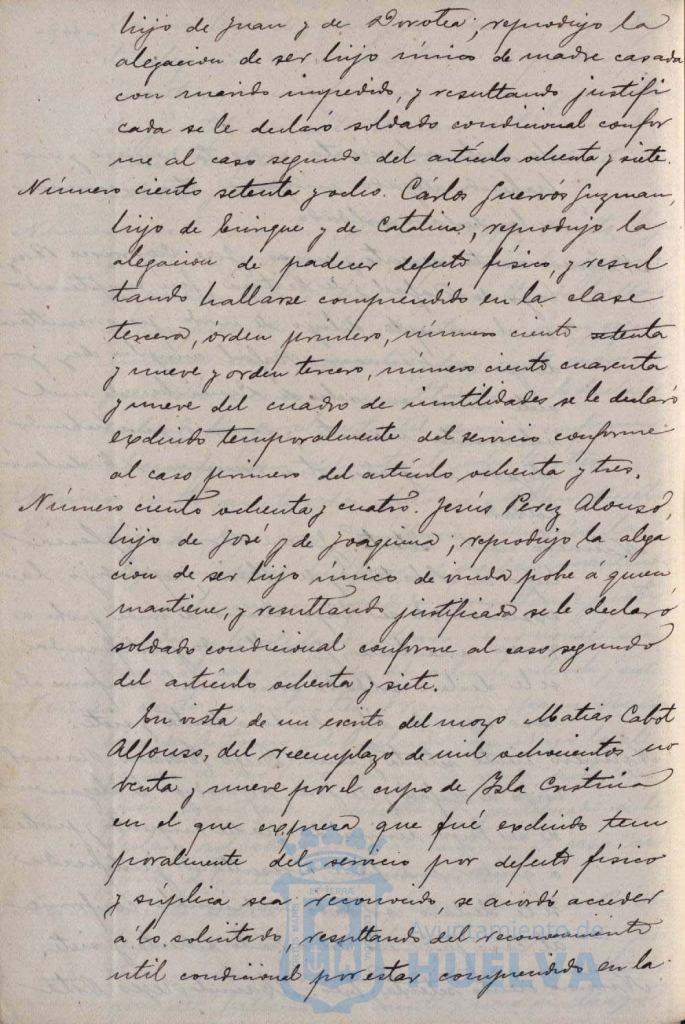 hijo de Juan y de Dorotea; reprodujo la
alegacion de ser hijo único de madre casada
con marido impedido, y resultando justifi
cada se le declaró soldado condicional confor
me al caso segundo del artículo ochenta y siete.
Número ciento setenta y ocho. Cárlos Guervós Guzman,
hijo de Enrique y de Catalina, reprodujo la
alegacion de padecer defecto físico, y resul
tando hallarse comprendido en la clase
tercera, órden primero, número ciento setenta
y nueve y orden tercero, número ciento cuarenta
y nueve del cuadro de inutilidades se le declaró
excluido temporalmente del servicio conforme
al caso primero del artículo ochenta y tres.
Número ciento ochenta y cuatro. Jesús Perez Alonso,
hijo de José y de Joaquina; reprodujo la alega
cion de ser hijo único de viuda pobre á quien
mantiene, y resultando justificada se le declaró
soldado condicional conforme al caso segundo
del artículo ochenta y siete.
En vista de un escrito del mozo Matias Cabot
Alfonso, del reemplazo de mil ochocientos no
venta y nueve por el cupo de Isla Cristina
en el que expresa que fué excluido tem
poralmente del servicio por defecto físico
y súplica sea reconocido, se acordó acceder
á lo solicitado, resultando del reconocimiento
util condicional por estar comprendido en la
Ayuntamiento de
HUELVA